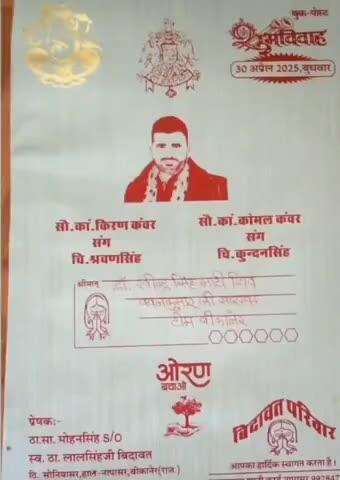 बुक-पोस्ट
शुभविवाह
30 अप्रेल 2025, बुधवार
सौ.कां.किरण कंवर
संग
चि.श्रवणसिंह
सौ.कां.कोमल कंवर
संग
चि.कुन्दनसिंह
श्रीमान्
टीम बीकानेर
ओरण
बचाओ
प्रेषक:-
ठा.सा. मोहनसिंह S/O
स्व. ठा. लालसिंहजी बिदावत
वि. सोनियासर, हाल-नापासर, बीकानेर (राज.)
बिदावत परिवार
आपका हार्दिक स्वागत करता है।
नापासर